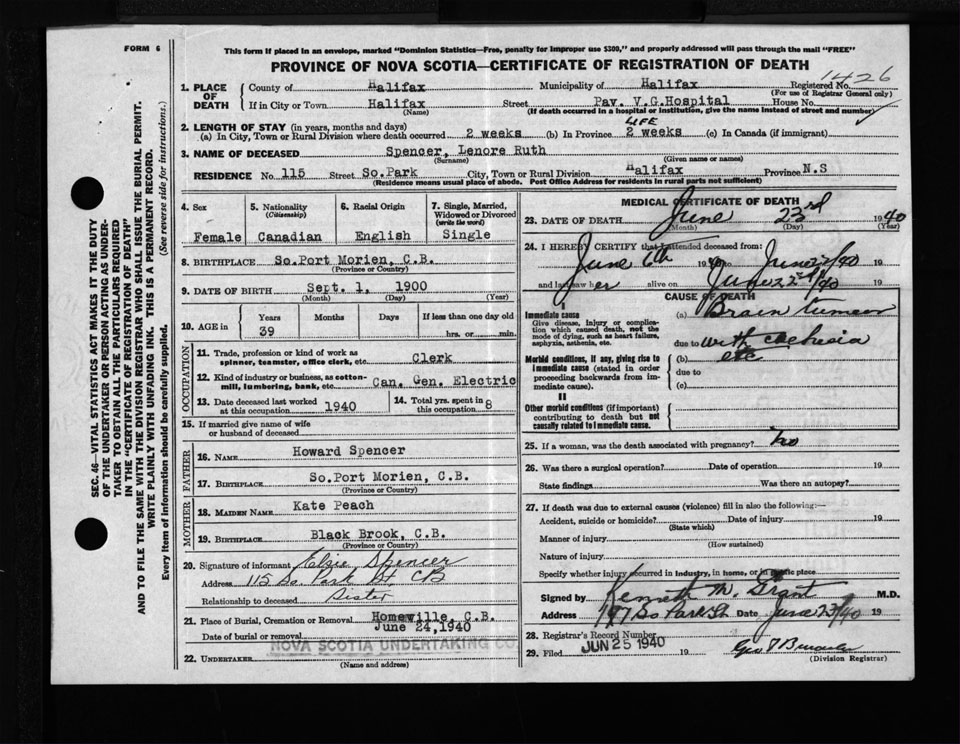 FORM 6
This form if placed in an envelope, marked "Dominion Statistics—Free, penalty for improper use $300," and properly addressed will pass through the mail "FREE"
PROVINCE OF NOVA SCOTIA—CERTIFICATE OF REGISTRATION OF DEATH
1426
1. PLACE OF DEATH
County of Halifax Municipality of Halifax Registered No.
(For use of Registrar General only)
If in City or Town Halifax Street Pav. V.G.Hospital House No.
(Name) (If death occurred in a hospital or institution, give the name instead of street and number)
2. LENGTH OF STAY (in years, months and days) LIFE
(a) In City, Town or Rural Division where death occurred 2 weeks (b) In Province 2 weeks (c) In Canada (if immigrant)
3. NAME OF DECEASED Spencer, Lenore Ruth
(Surname) (Given name or names)
RESIDENCE No. 115 Street So.Park City, Town or Rural Division Halifax Province N.S
(Residence means usual place of abode. Post Office Address for residents in rural parts not sufficient)
4. Sex 5. Nationality (Citizenship) 6. Racial Origin 7. Single, Married, Widowed or Divorced (write the word)
Female Canadian English Single
8. BIRTHPLACE So.Port Morien, C.B.
(Province or Country)
9. DATE OF BIRTH Sept. 1, 1900
(Month) (Day) (Year)
10. AGE in Years Months Days If less than one day old
39 hrs. or min.
OCCUPATION
11. Trade, profession or kind of work as spinner, teamster, office clerk, etc. Clerk
12. Kind of industry or business, as cotton-mill, lumbering, bank, etc. Can. Gen. Electric
13. Date deceased last worked at this occupation 1940 14. Total yrs. spent in this occupation 8
15. If married give name of wife or husband of deceased
FATHER
16. NAME Howard Spencer
17. BIRTHPLACE So.Port Morien, C.B.
(Province or Country)
MOTHER
18. MAIDEN NAME Kate Peach
19. BIRTHPLACE Black Brook, C.B.
(Province or Country)
20. Signature of informant Elsie Spencer
Address 115 So. Park St. CB
Relationship to deceased Sister
21. Place of Burial, Cremation or Removal Homeville, C.B.
Date of burial or removal June 24, 1940
22. UNDERTAKER NOVA SCOTIA UNDERTAKING CO.
(Name and address)
MEDICAL CERTIFICATE OF DEATH
23. DATE OF DEATH June 23rd 1940
(Month) (Day) (Year)
24. I HEREBY CERTIFY that I attended deceased from:
June 6th 1940 to June 22/40 19
and last saw her alive on June 22nd/40 19
CAUSE OF DEATH
I
Immediate cause (a) Brain tumour
Give disease, injury or complication which caused death, not the mode of dying, such as heart failure, asphyxia, asthenia, etc.
due to with
Morbid conditions, if any, giving rise to immediate cause (stated in order proceeding backwards from immediate cause).
(b) etc
due to
(c)
II
Other morbid conditions (if important) contributing to death but not causally related to immediate cause.
25. If a woman, was the death associated with pregnancy? No
26. Was there a surgical operation? Date of operation 19
State findings Was there an autopsy?
27. If death was due to external causes (violence) fill in also the following:—
Accident, suicide or homicide? Date of injury 19
(State which)
Manner of injury
(How sustained)
Nature of injury
Specify whether injury occurred in industry, in home, or in public place
Signed by Kenneth M. Grant M.D.
Address 197 So Park St. Date June 23/40 19
28. Registrar's Record Number
29. Filed JUN 25 1940 19
(Division Registrar)
SEC. 46—VITAL STATISTICS ACT MAKES IT THE DUTY
OF THE UNDERTAKER OR PERSON ACTING AS UNDER-
TAKER TO OBTAIN ALL THE PARTICULARS REQUIRED
IN THE "CERTIFICATE OF REGISTRATION OF DEATH"
AND TO FILE THE SAME WITH THE DIVISION REGISTRAR WHO SHALL ISSUE THE BURIAL PERMIT.
WRITE PLAINLY WITH UNFADING INK. THIS IS A PERMANENT RECORD.
Every item of information should be carefully supplied. (See reverse side for instructions.)